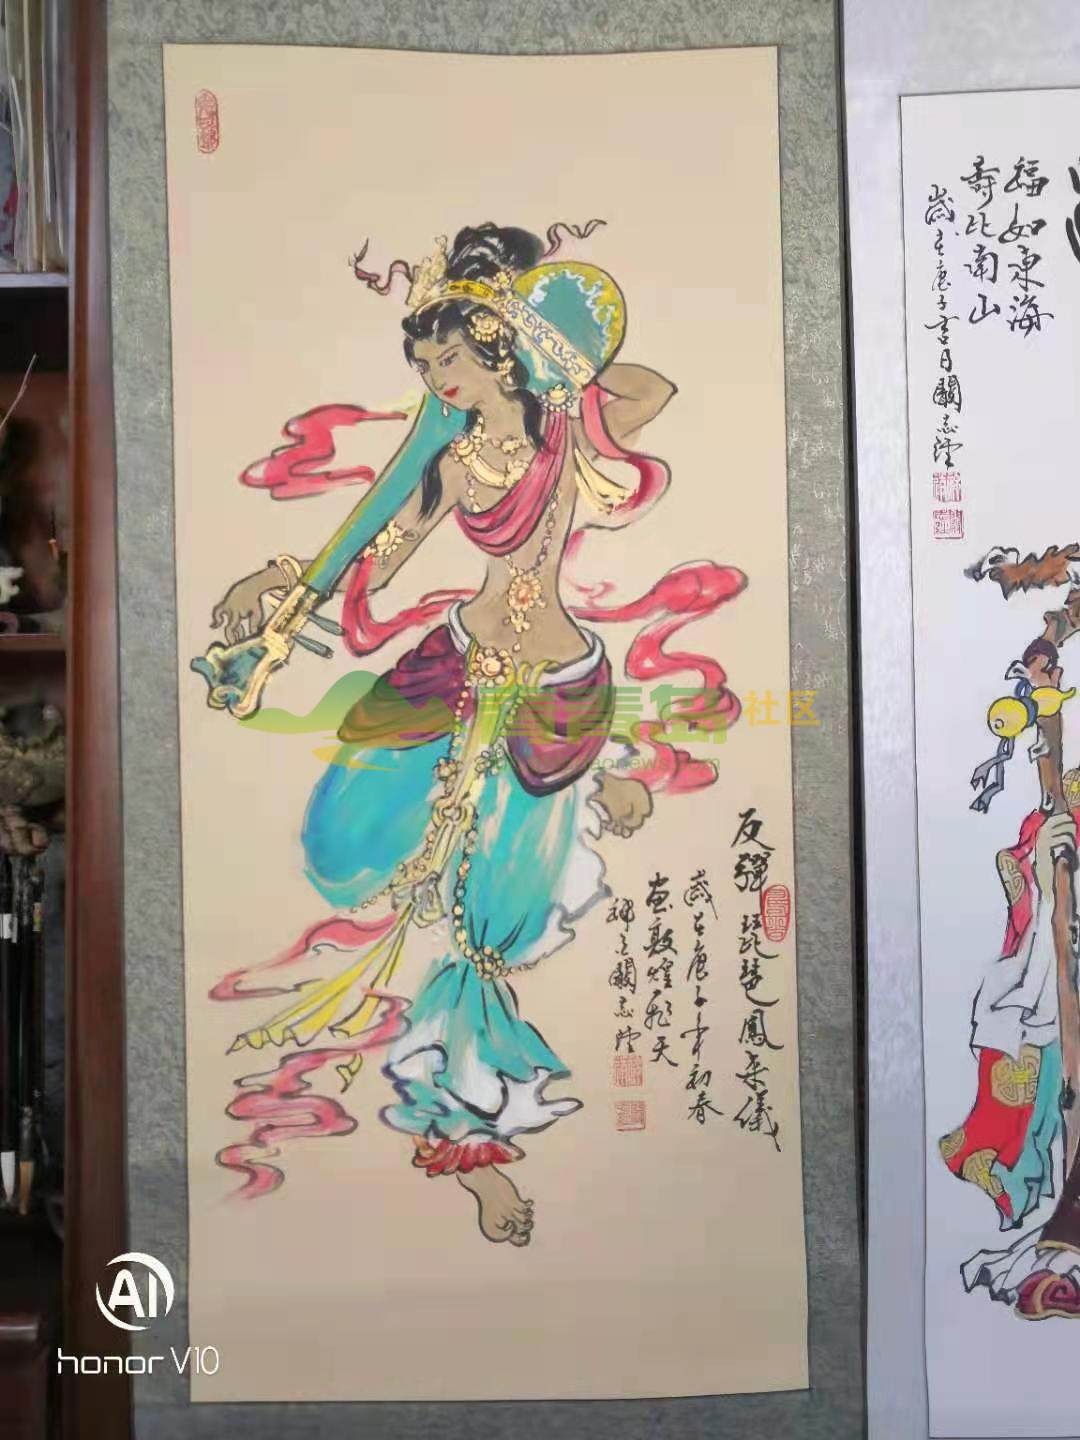 反彈琵琶鳳来儀
歲在庚子年初春
画敦煌飛天
關志
福如東海
壽比南山
歲在庚子吉月關志
青青岛社区
AI
honor V10